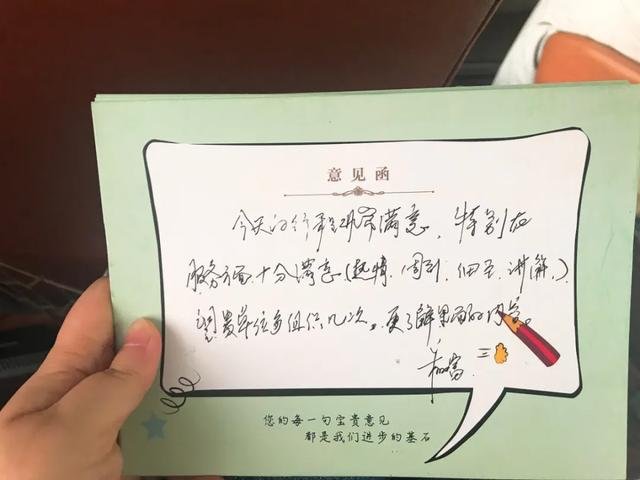 意见函
今天的行程非常满意，特别在
服务方面十分满意（热情、周到、细至、讲解、）
望贵单位多组织几次，更了解里面的内容。
您的每一句宝贵意见
都是我们进步的基石